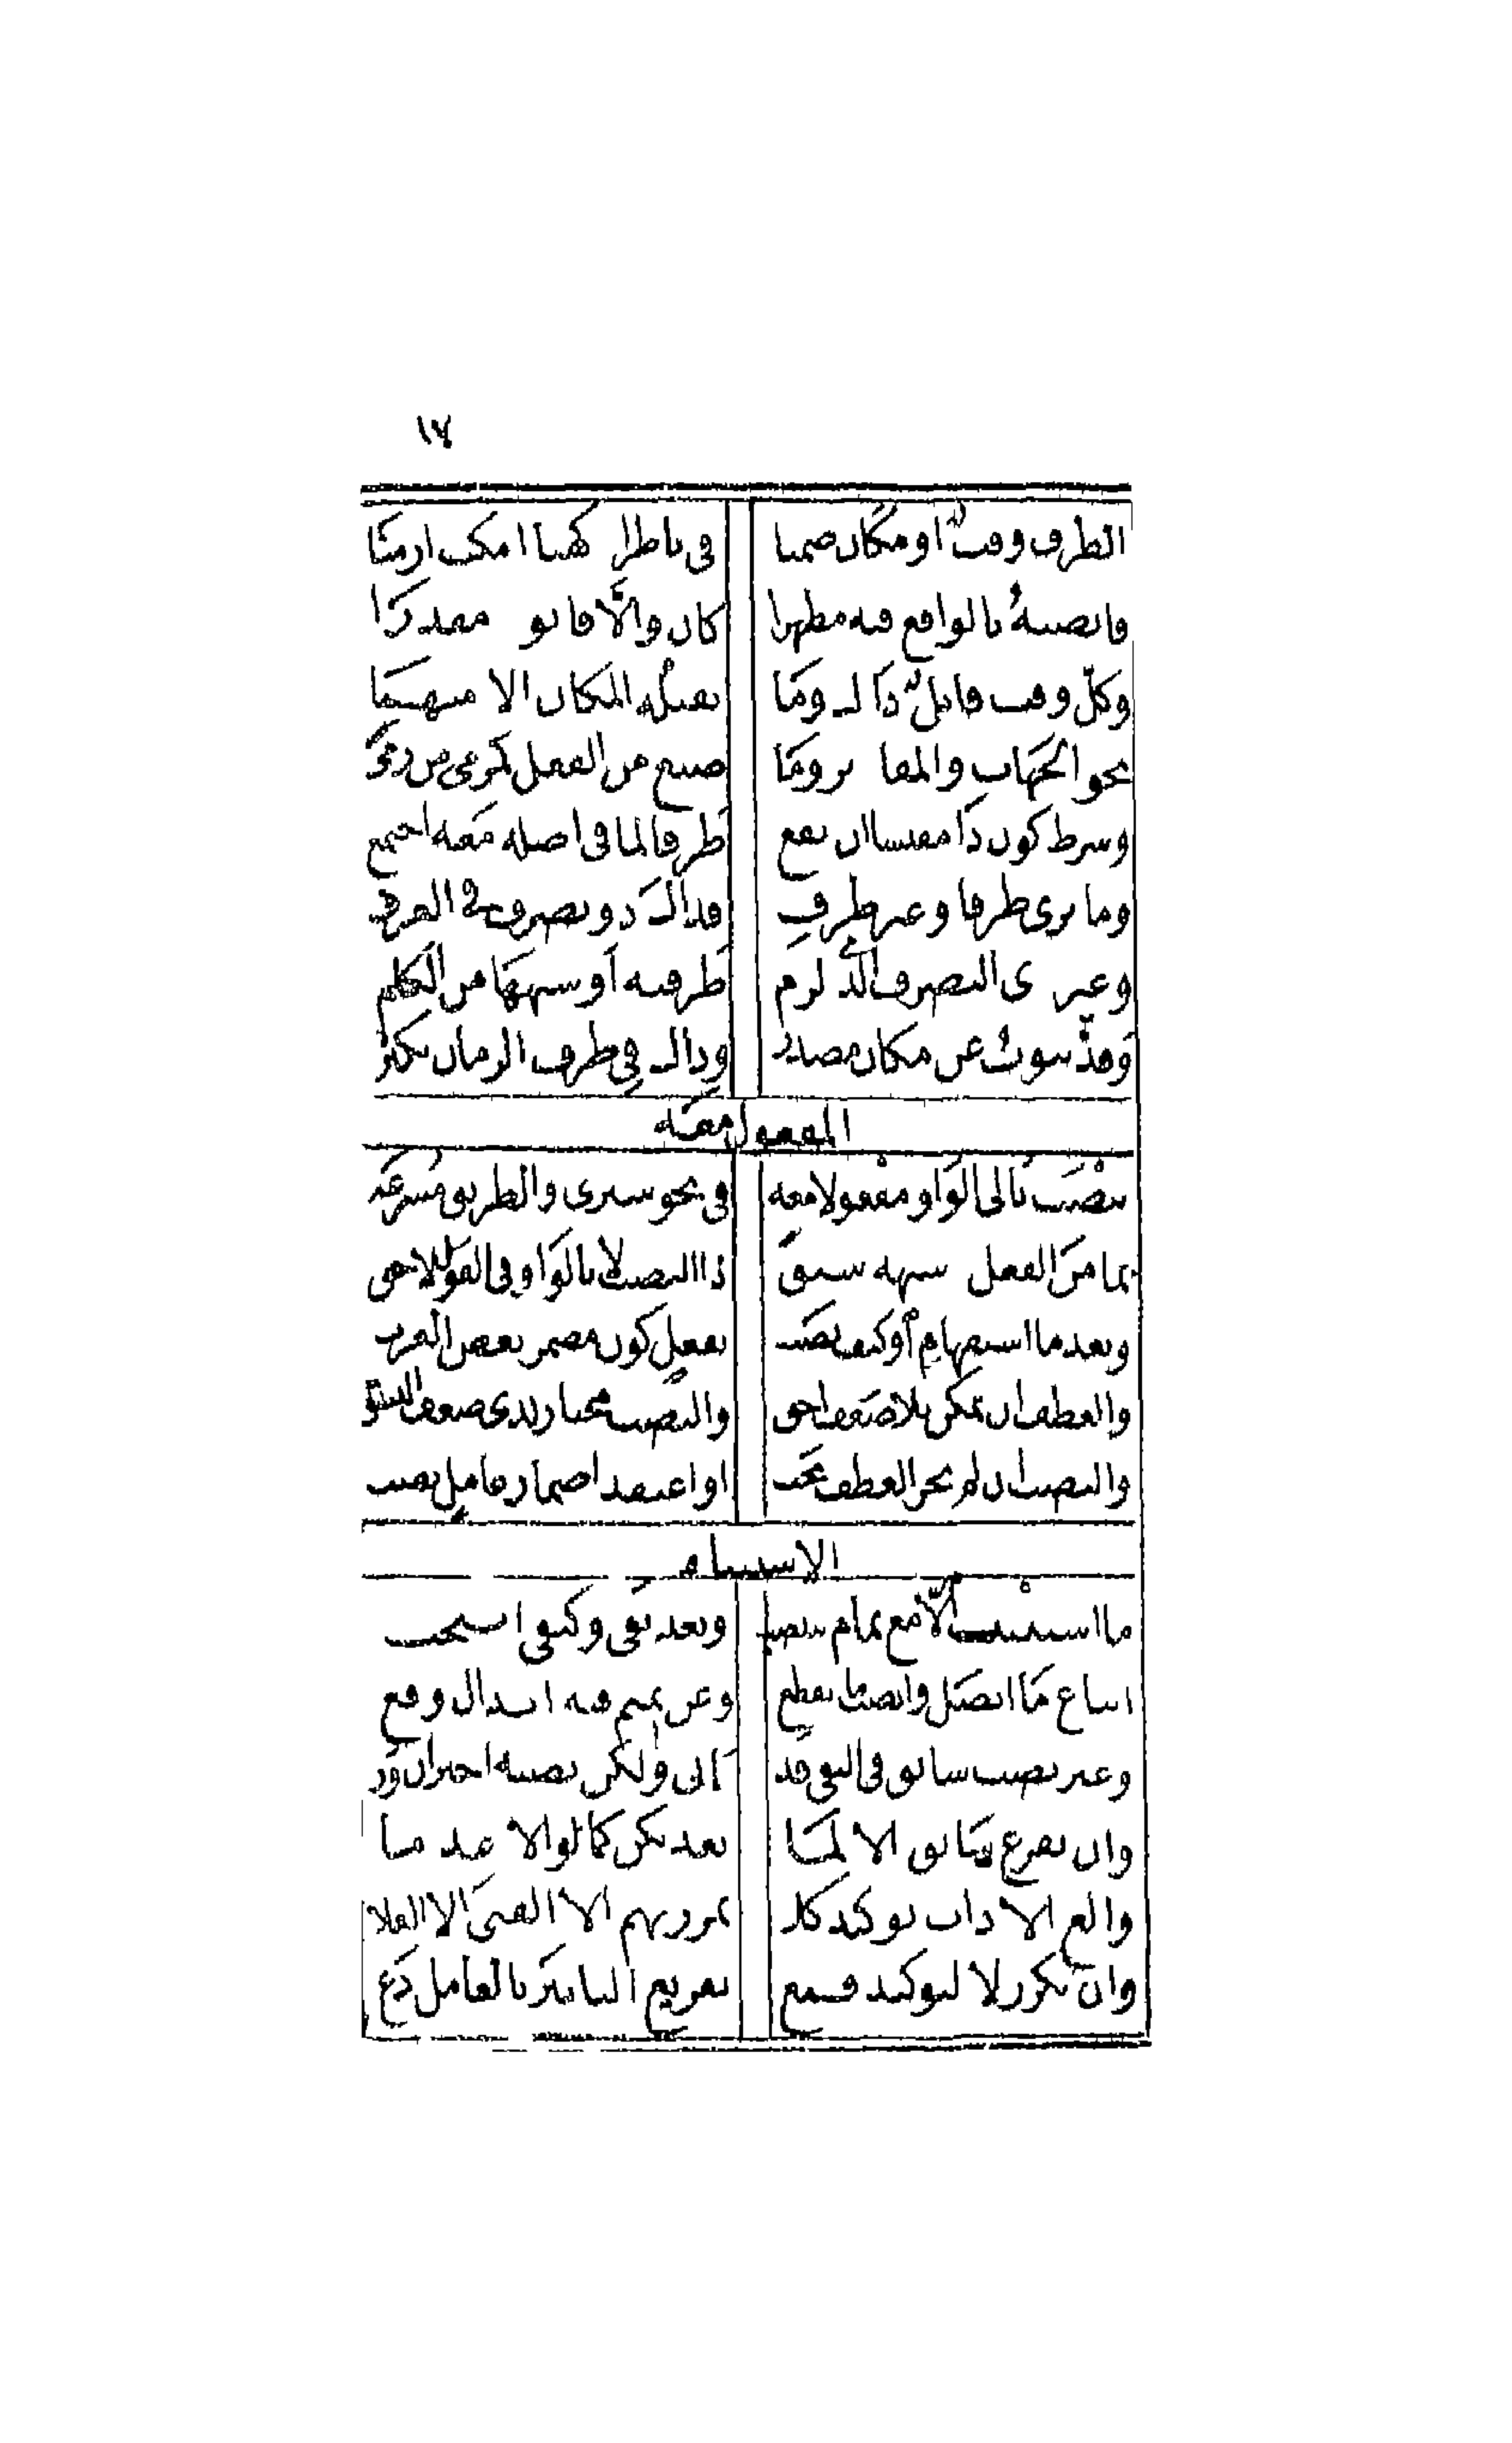 ١٧
الظرف وقتٌ او مكان ضمنا في باطراد كهنا امكث ازمنا
فانصبهُ بالواقع فيه مظهرا كان والّا فانو مقدرَا
وكلّ وقت قابلٌ ذَاك ومَا يقبلُه المكان الا مبهمَا
نحو الجهَات والمقادير ومَا صيغ من الفعل كمرمى من رمَى
وشرط كون ذَا مقيسا ان يقع ظرفا لما في اصله مَعه اجتمع
وما يرى ظرفا وغير ظرفِ فذاك ذو تصرف في العرف
وغير ذي التصرف الذي لزم ظرفيه أو شبههَا من الكلم
وَقدْ ينوبُ عن مكان مصدر وذاك في ظرف الزمان يكثرُ
المفعول معَه
ينْصَب تَالى الوَاو مفْعولا معه في نحو سيرى والطريق مسْرعَه
بما مَن الفعل شبهه سبقَ ذا النصب لا بالوَاو في القول الاحق
وبعد ما استفهامٍ أو كيف نصَب بفعلِ كون مضمر بعض العرب
والعطف ان يمكن بلا ضَعف احق والنصب مختار لدى ضعف النسق
والنصب ان لم يجز العطف يجَب او اعتقد اضمار عاملٍ تصب
الاستثناء
ما استثنْت الّا مع تمام ينتصب وبعد نفي وكنفي انتخب
اتباع مَا اتصَل وانصب ما انقطع وعن تميم فيه ابدال وقع
وغير نصب سابق في النفي قد يَاتى ولكن نصبه اختر ان ورَد
وان يفرغ سَابق الا لمَا بعد يكن كما لو الا عدما
والغ الا ذات توكيد كلا تمرر بهم الا الفتىَ الا العلا
وان تكرر لا لتوكيد فمع تفريغ التاثيرَ بالعامل دَع